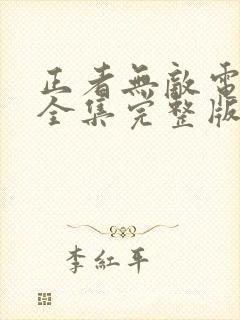 正者無敵電
全集完整版
李紅平